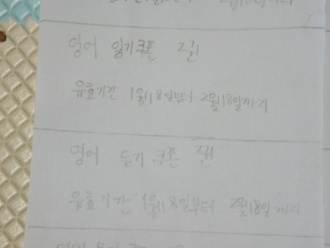 영어 읽기 쿠폰 젤
유효기간 1월18일부터 2월18일까지
영어 듣기 쿠폰 젤
유효기간 1월18일부터 2월18일까지